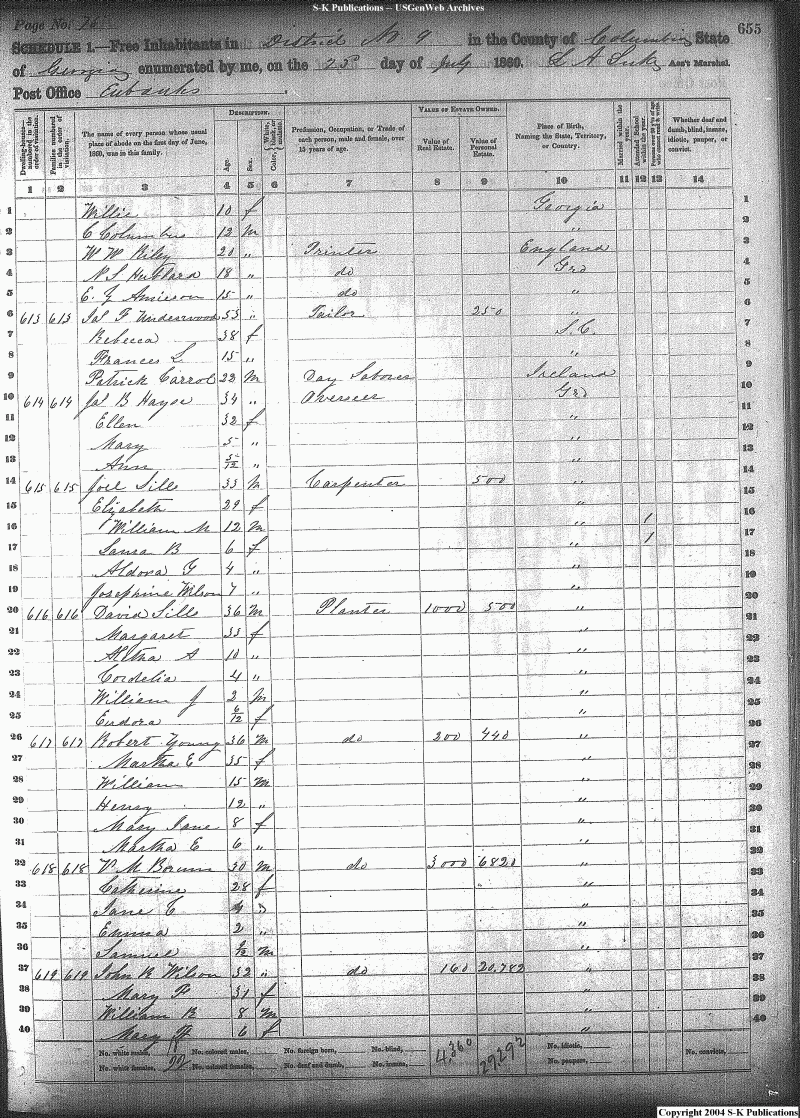 S-K Publications -- USGenWeb Archives
Page No. 76
655
SCHEDULE 1.—Free Inhabitants in District No 9 in the County of Columbia State
of Georgia enumerated by me, on the 25 day of July 1860. Ass't Marshal.
Post Office Eubanks
Dwelling-houses—numbered in the order of visitation.
Families numbered in the order of visitation.
The name of every person whose usual place of abode on the first day of June, 1860, was in this family.
DESCRIPTION.
Age.
Sex.
Color, White, black, or mulatto.
Profession, Occupation, or Trade of each person, male and female, over 15 years of age.
VALUE OF ESTATE OWNED.
Value of Real Estate.
Value of Personal Estate.
Place of Birth, Naming the State, Territory, or Country.
Married within the year.
Attended School within the year.
Persons over 20 y'rs of age who cannot read & write.
Whether deaf and dumb, blind, insane, idiotic, pauper, or convict.
1 2 3 4 5 6 7 8 9 10 11 12 13 14
1 Willie 10 f Georgia 1
2 C Columbus 12 m " 2
3 W W Riley 20 " Printer England 3
4 N S Hubbard 18 " do Geo 4
5 15 " do " 5
6 613 613 Jas F Underwood 53 " Tailor 250 " 6
7 Rebecca 38 f S.C. 7
8 Frances L 15 " " 8
9 Patrick Carrol 22 m Day Laborer Ireland 9
10 614 614 Jas B Hayse 34 " Overseer Geo 10
11 Ellen 32 f " 11
12 Mary 5 " " 12
13 Ann 5/12 " " 13
14 615 615 Joel Sills 33 m Carpenter 500 " 14
15 Elizabeth 29 f " 15
16 William M 12 m " 1 16
17 Laura B 6 f " 1 17
18 Aldora G 4 " " 18
19 Josephine Wilson 7 " " 19
20 616 616 David Sills 36 m Planter 1000 500 " 20
21 Margaret 33 f " 21
22 Aletha A 10 " " 22
23 Cordelia 4 " " 23
24 William J 2 m " 24
25 Eudora 6/12 f " 25
26 617 617 Robert Young 36 m do 200 440 " 26
27 Martha E 35 f " 27
28 William 15 m " 28
29 Henry 12 " " 29
30 Mary Jane 8 f " 30
31 Martha E 6 " " 31
32 618 618 V M Borum 30 m do 3000 6820 " 32
33 Catherine 28 f " 33
34 Jane C 4 " " 34
35 Emma 2 " " 35
36 Samuel m " 36
37 619 619 John B Wilson 32 " do 160 20,782 " 37
38 Mary F 31 f " 38
39 William B 8 m " 39
40 Mary 6 f " 40
No. white males, No. colored males, No. foreign born, No. blind, 4,360 29,292 No. idiotic, No. convicts,
No. white females, No. colored females, No. deaf and dumb, No. insane, No. paupers,
Copyright 2004 S-K Publications